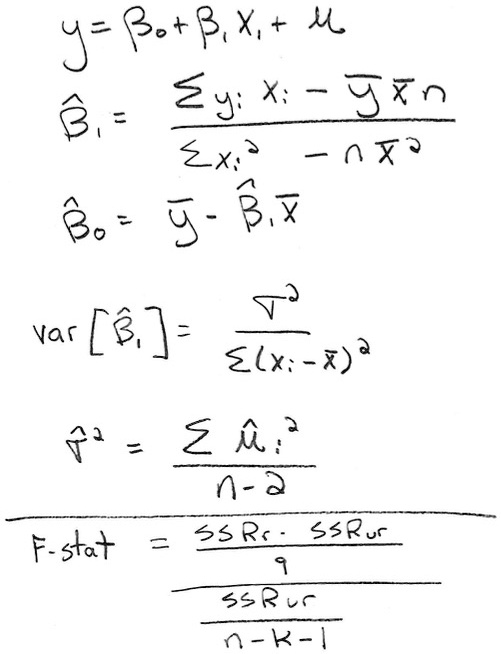 y = β₀ + β₁ x₁ + u
β̂₁ = (Σ yᵢ xᵢ − ȳ x̄ n) / (Σ xᵢ² − n x̄²)
β̂₀ = ȳ − β̂₁ x̄
var [β̂₁] = σ² / Σ(xᵢ − x̄)²
σ̂² = Σ ûᵢ² / (n−2)
F-stat = ((SSRr - SSRur) / q) / (SSRur / (n−k−1))